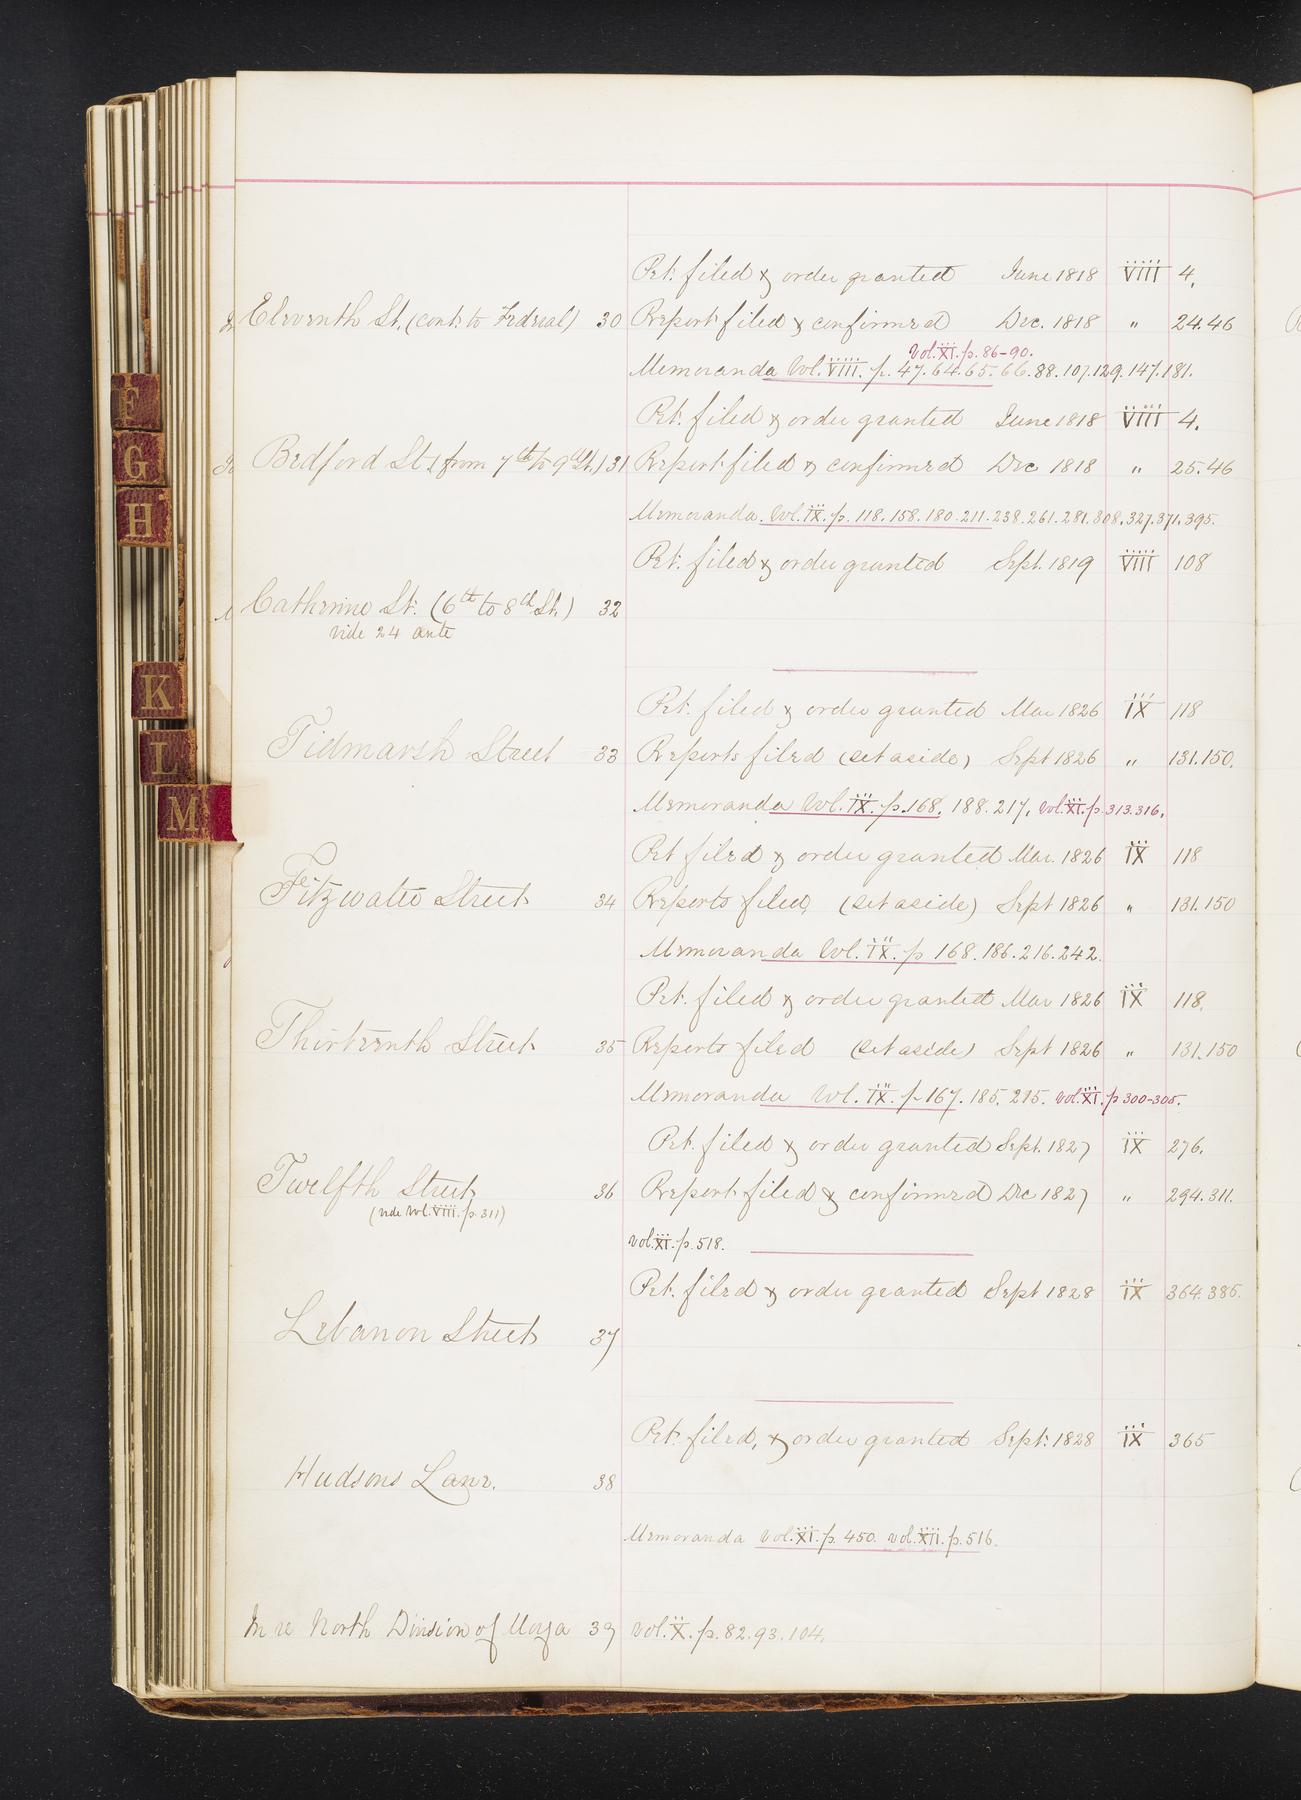 Pet. filed & order granted June 1818 VIII 4.
Eleventh St. (cont. to Federal) 30 Report filed & confirmed Dec. 1818 " 24.46
Vol. XI. p. 86-90.
Memoranda Vol. VIII. p. 47. 64. 65. 66. 88. 107. 129. 147. 181.
Pet. filed & order granted June 1818 VIII 4.
Bedford St. (from 7th to 9th St.) 31 Report filed & confirmed Dec 1818 " 25.46
Memoranda. Vol. IX. p. 118. 158. 180. 211. 238. 261. 281. 308. 327. 371. 395.
Pet. filed & order granted Sept. 1819 VIII 108
Catherine St. (6th to 8th St.) 32
vide 24 ante
Pet. filed & order granted Mar 1826 IX 118
Tidmarsh Street 33 Reports filed (set aside) Sept 1826 " 131.150.
Memoranda Vol. IX. p. 168. 188. 217. Vol. XI. p. 313. 316.
Pet filed & order granted Mar. 1826 IX 118
Fitzwater Street 34 Reports filed, (set aside) Sept 1826 " 131.150
Memoranda Vol. IX. p 168. 186. 216. 242.
Pet. filed & order granted Mar 1826 IX 118.
Thirteenth Street 35 Reports filed (set aside) Sept 1826 " 131.150
Memoranda Vol. IX. p 167. 185. 215. Vol. XI. p 300-305.
Pet. filed & order granted Sept. 1827 IX 276.
Twelfth Street 36 Report filed & confirmed Dec 1827 " 294.311.
(vide Vol. VIII. p. 311)
Vol. XI. p. 518.
Pet. filed & order granted Sept 1828 IX 364.386.
Lebanon Street 37
Pet. filed, & order granted Sept. 1828 IX 365
Hudsons Lane. 38
Memoranda Vol. XI. p. 450. Vol. XII. p. 516.
In re North Division of Moya 39 Vol. X. p. 82. 93. 104.
F
G
H
K
L
M